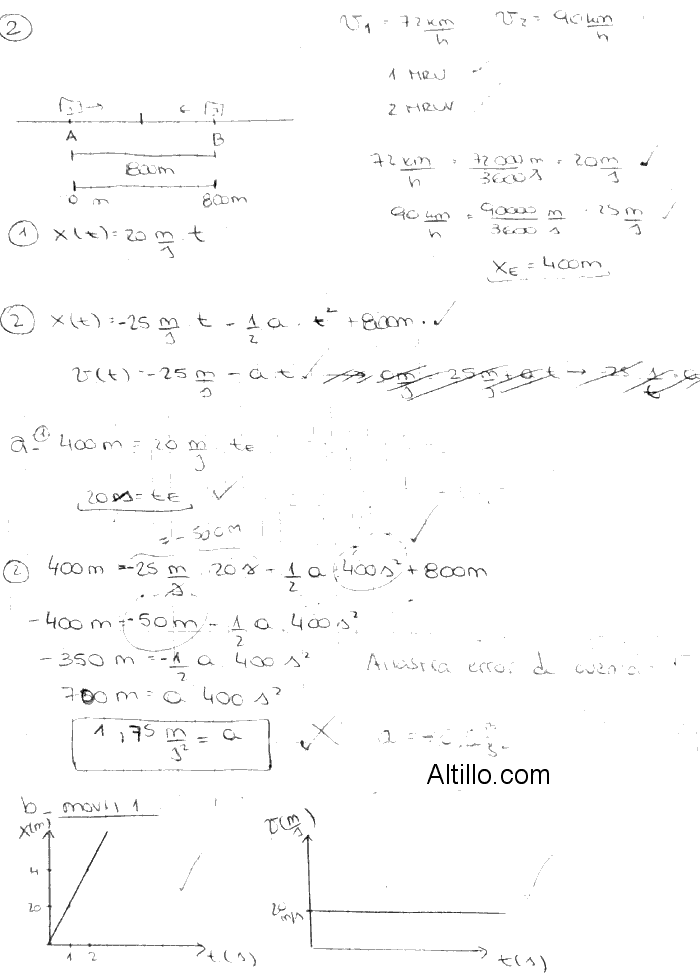 2
V₁ = 72 km/h   V₂ = 90 km/h
1 MRU
2 MRUV
A   B
800m
0 m   800m
72 km/h = 72000 m/3600 s = 20 m/s ✓
90 km/h = 90000 m/3600 s = 25 m/s ✓
x_E = 400m
① x(t) = 20 m/s · t
② x(t) = -25 m/s · t - 1/2 a · t² + 800m · ✓
v(t) = -25 m/s - a · t ✓
a- ① 400m = 20 m/s · t_E
20 s = t_E ✓
= -500m
② 400m = -25 m/s · 20 s - 1/2 a · 400 s² + 800m
-400m = -50m - 1/2 a · 400 s²
-350m = -1/2 a 400 s²
Arrastra error de cuenta
700m = a 400 s²
1,75 m/s² = a
Altillo.com
b- movil 1
x(m)   V(m/s)
4
20   20 m/s
1 2   t(s)   t(s)